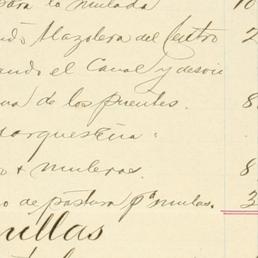 para la mulada 10
Mazolera del Centro 2
ando el Canal y desvi
ua de los puentes. 8
arquesena:
o + muleros. 8
o de pastura pª mulas. 3
illas